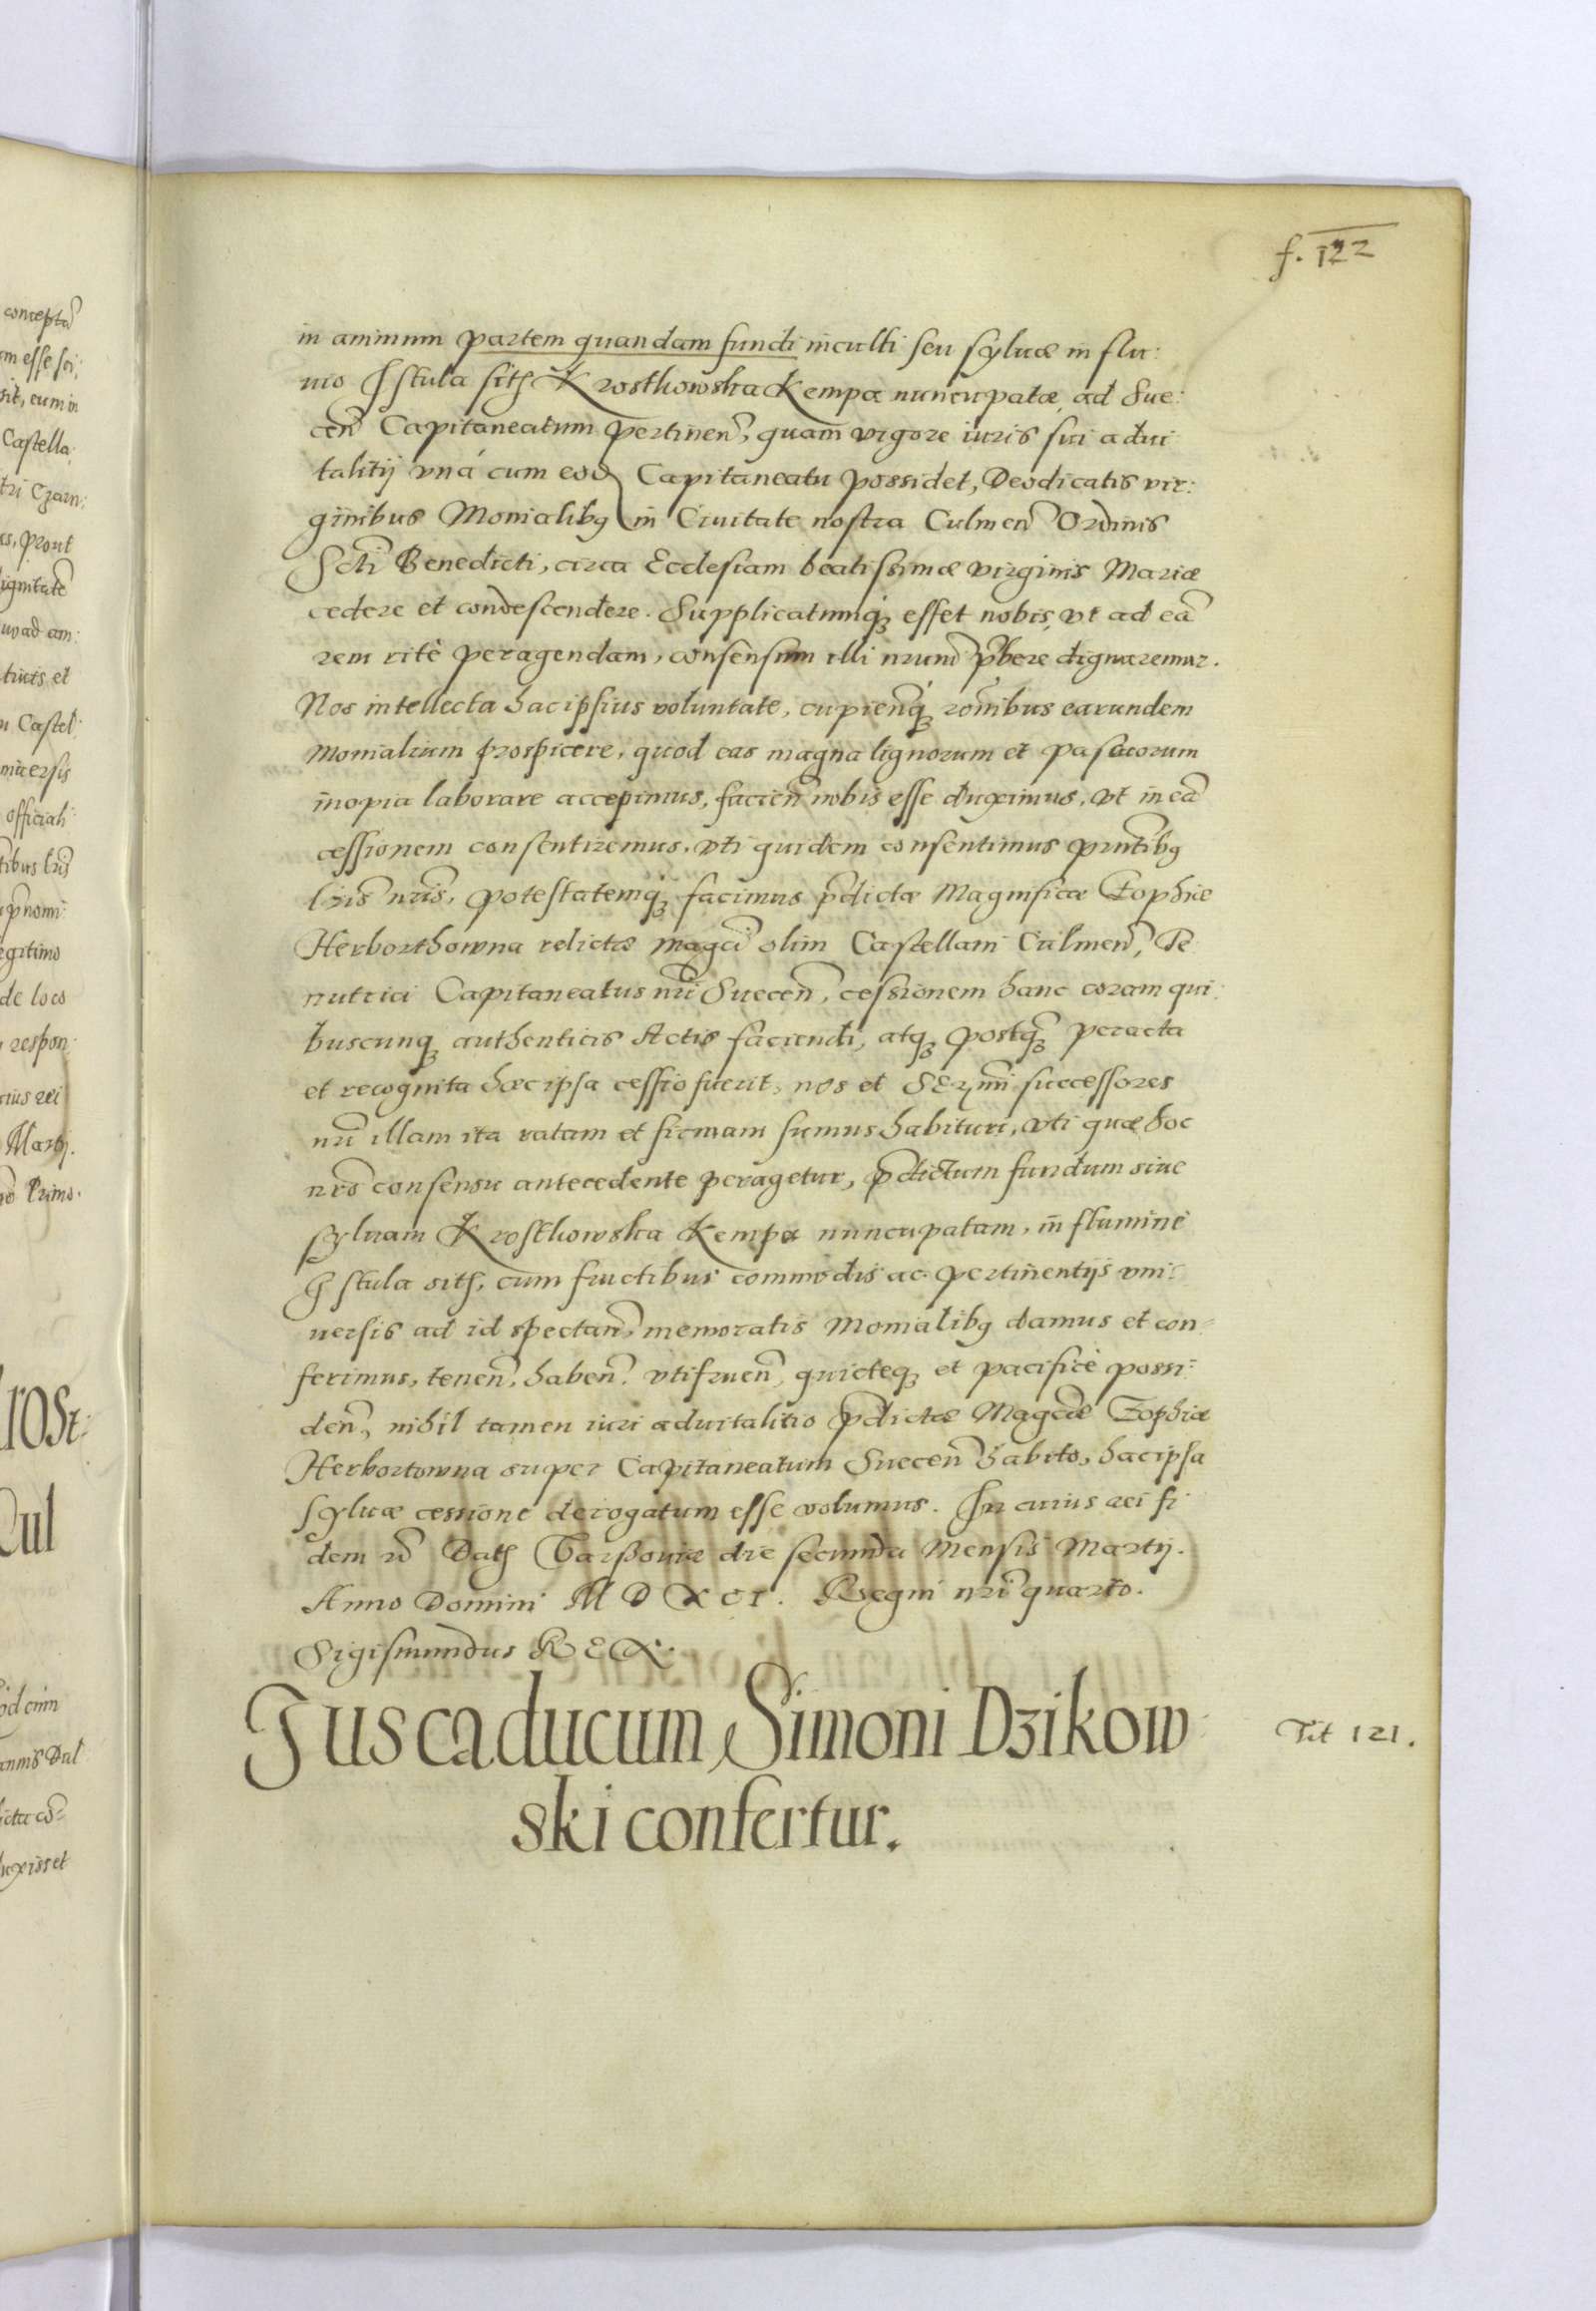 f. 122
in animum partem quandam fundi inculti seu sylvæ in flu:
uio Istula sitȩ Krostkowska Kempa nuncupatæ, ad Sue:
cen̄ Capitaneatum pertinen̄, quam vigore iuris sui adui
talitij vná cum eod Capitaneatu possidet, Deodicatis vir:
ginibus Monialibꝰ in Ciuitate nostra Culmen̄ Ordinis
Scti Benedicti, circa Ecclesiam beatissimæ virginis Mariæ
cedere et condescendere. Supplicatumqꝫ esset nobis, vt ad eā
rem ritè peragendam, consensum illi nrum̄ p̄bere dignaremur.
Nos intellecta hac ipsius voluntate, cupien̄qꝫ rōnibus earundem
Monialium prospicere, quod eas magna lignorum et pascuorum
inopia laborare accepimus, facien̄ nobis esse duximus, vt in eā
cessionem consentiremus, vti quidem consentimus pn̄tibꝰ
lr̄is nr̄is, potestatemqꝫ facimus p̄dictæ Magnificæ Zophiæ
Herborthowna relictæ magc̄i olim Castellani Culmen̄, Te
nutrici Capitaneatus nr̄i Suecen̄, cessionem hanc coram qui:
buscunqꝫ authenticis Actis faciendi, atqꝫ postqꝫ peracta
et recognita hæc ipsa cessio fuerit, nos et Serm̄i successores
nr̄i illam ita ratam et firmam sumus habituri, vti quæ hoc
nr̄o consensu antecedente peragetur, p̄dictum fundum siue
syluam Krostkowska Kempa nuncupatam, in flumine
Istula sitȩ, cum fructibus commodis ac pertinentijs vni:
uersis ad id spectan̄, memoratis Monialibꝰ damus et con:
ferimus, tenen̄, haben̄, vtifruen̄, quieteqꝫ et pacificè possi:
den̄, nihil tamen iuri aduitalitio p̄dictæ Magc̄æ Zophiæ
Herbortowna super Capitaneatum Suecen̄ habito, hac ipsa
syluæ cessione derogatum esse volumus. In cuius rei fi
dem rc̄ Datȩ Varssouiæ die secunda Mensis Martij.
Anno Domini M D XCI. Regni nr̄i quarto.
Sigismundus REX.
Jus caducum Simoni Dzikow
ski confertur.
Tit 121.